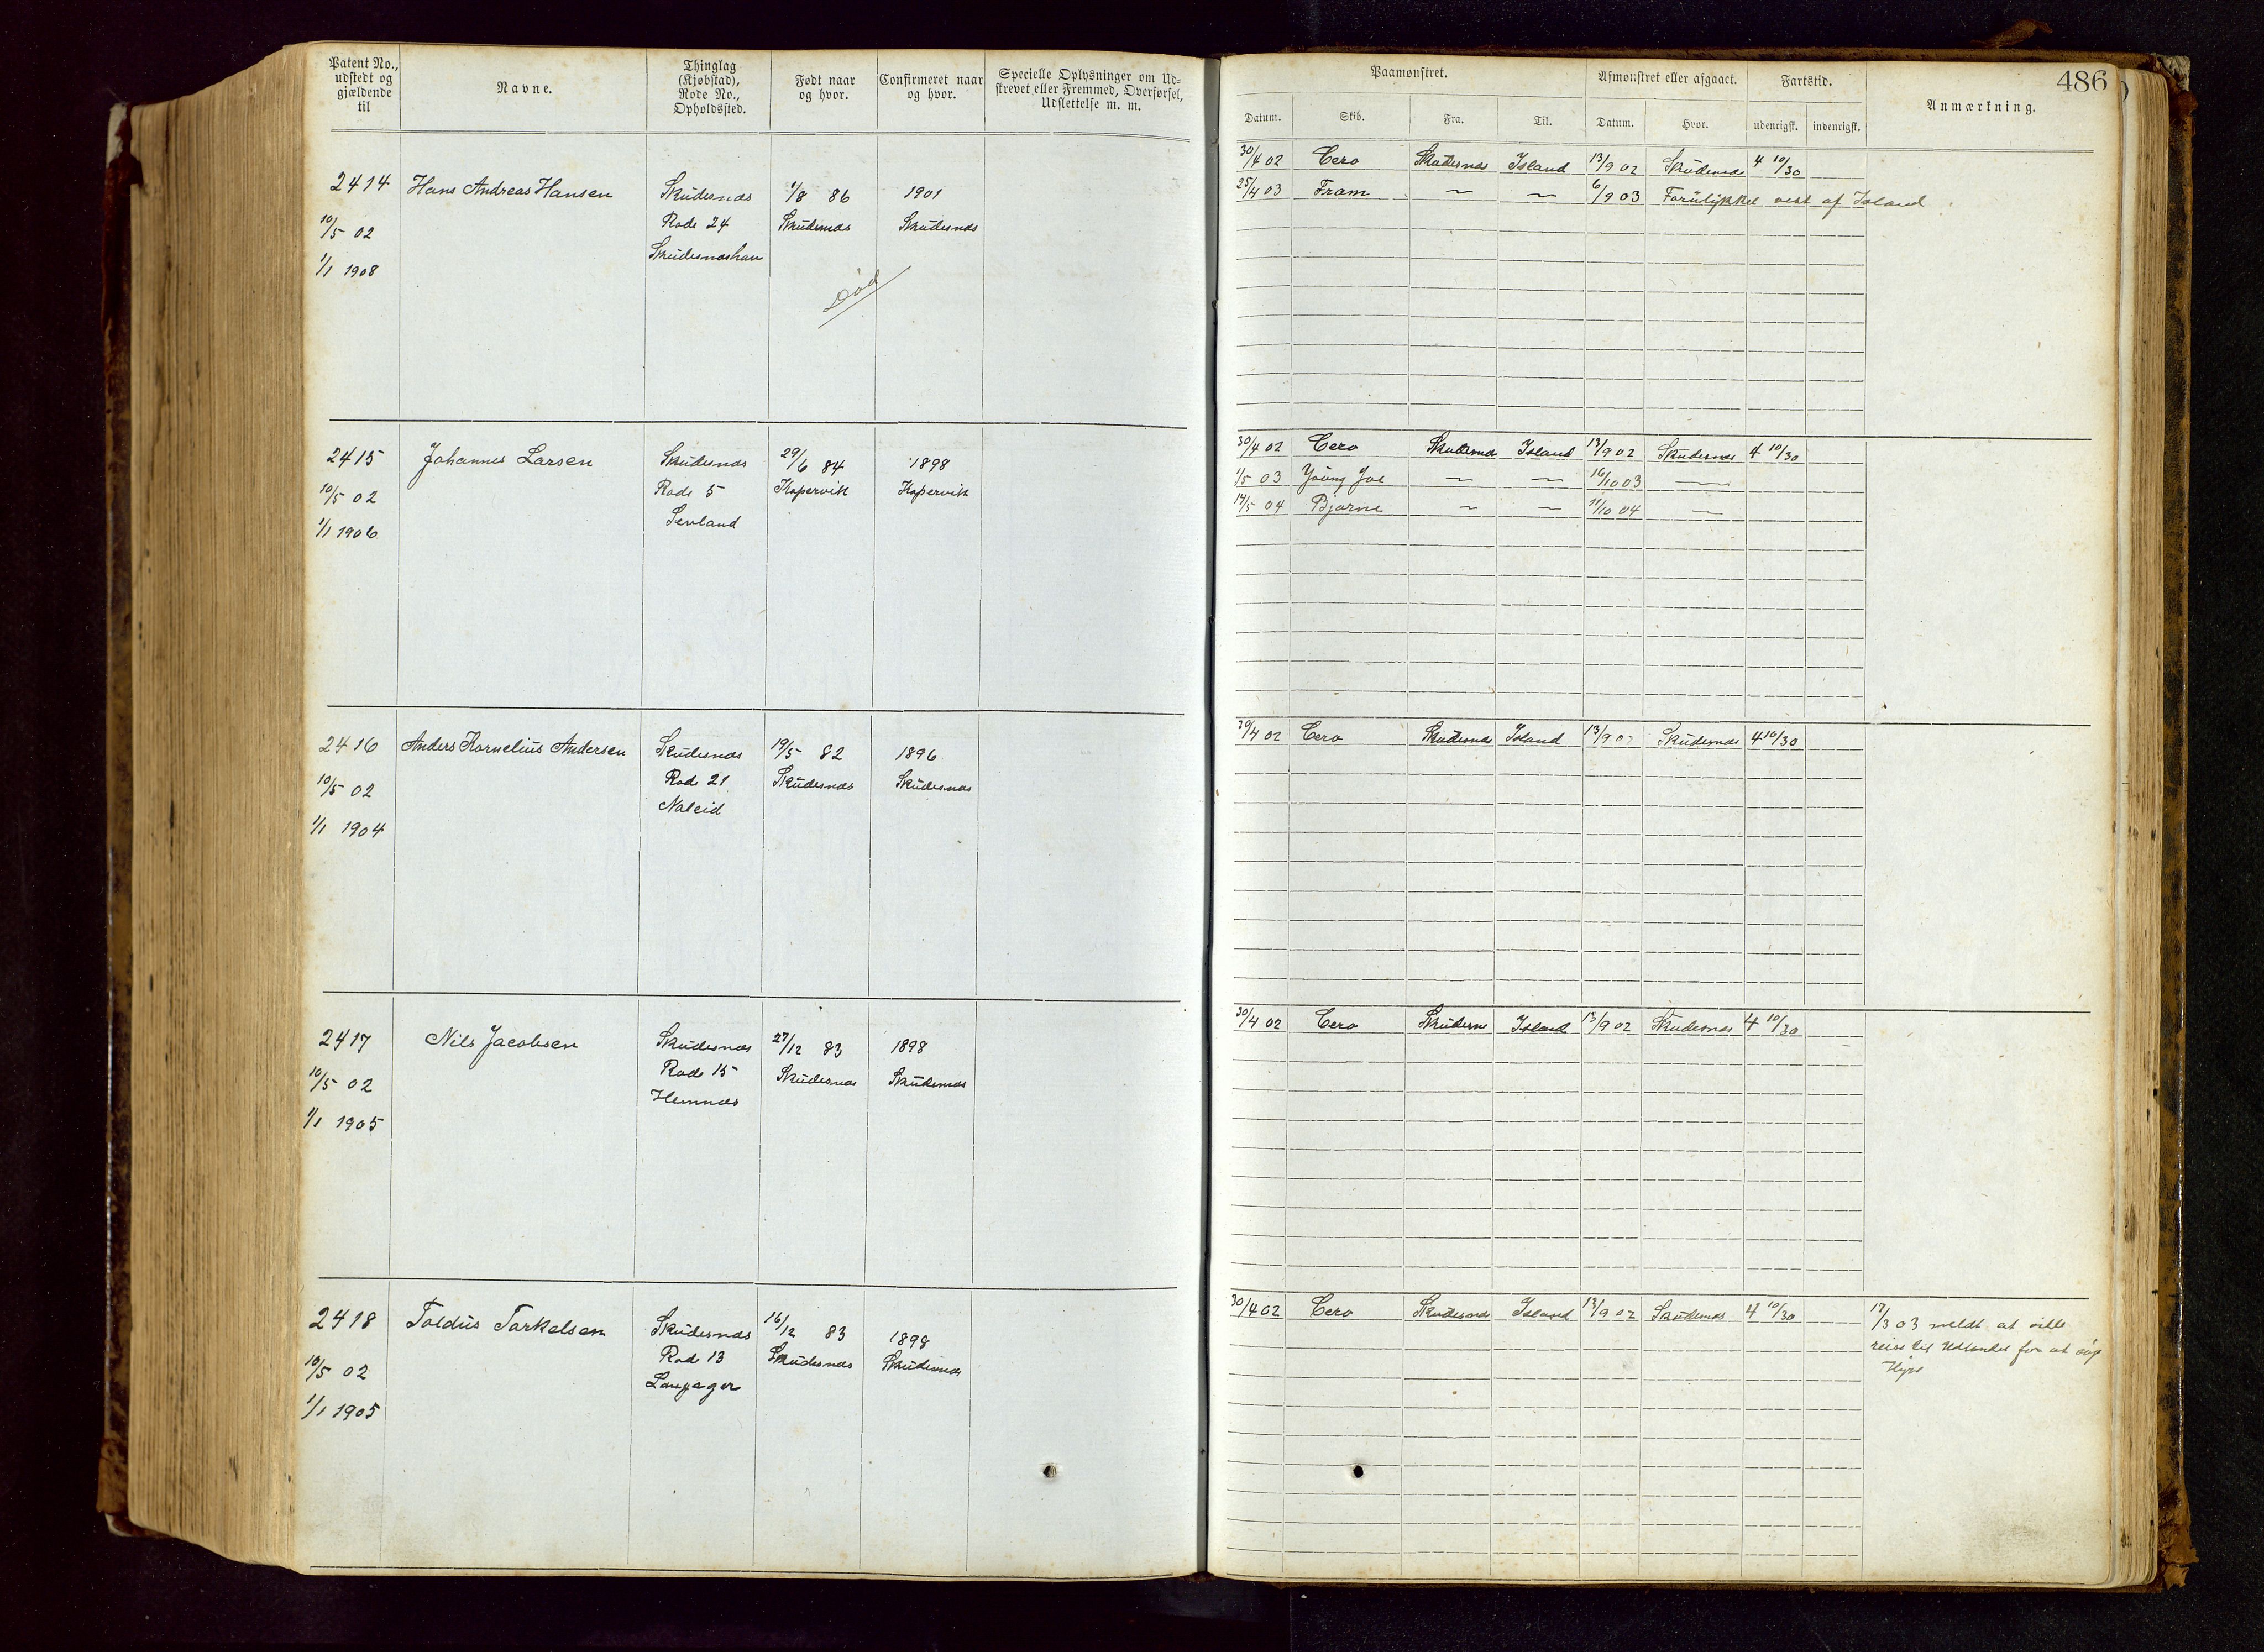 Patent No., udstedt og gjældende til
Navne.
Thinglag (Kjøbstad), Rode No., Opholdssted.
Født naar og hvor.
Confirmeret naar og hvor.
Specielle Oplysninger om Udstrevet eller Fremmed, Overførsel, Udslettelse m. m.
Paamønstret.
Afmønstret eller afgaaet.
Fartstid.
Anmærkning.
486
Datum. Skib. Fra. Til. Datum. Hvor. udenrigsk. indenrigsk.
2414 Hans Andreas Hansen Skudesnæs 1/8 86 1901
10/5 02 Rode 24 Skudesnæs Skudesnæs
1/1 1908 Skudesnæshavn
Død
30/4 02 Cero Skudesnæs Island 13/9 02 Skudesnæs 4 10/30
25/4 03 Fram — — 6/9 03 Forulykket vest af Island
2415 Johannes Larsen Skudesnæs 29/6 84 1898
10/5 02 Rode 5 Kopervik Kopervik
1/1 1906 Sevland
30/4 02 Cero Skudesnæs Island 13/9 02 Skudesnæs 4 10/30
1/5 03 Young Joe — — 16/10 03 —
17/5 04 Bjarne — — 11/10 04 —
2416 Anders Kornelius Andersen Skudesnæs 19/5 82 1896
10/5 02 Rode 21 Skudesnæs Skudesnæs
1/1 1904 Naleid
30/4 02 Cero Skudesnæs Island 13/9 02 Skudesnæs 4 10/30
2417 Nils Jacobsen Skudesnæs 27/12 83 1898
10/5 02 Rode 15 Skudesnæs Skudesnæs
1/1 1905 Hemnæs
30/4 02 Cero Skudesne Island 13/9 02 Skudesnæs 4 10/30
2418 Toldus Torkelsen Skudesnæs 16/12 83 1898
10/5 02 Rode 13 Skudesnæs Skudesnæs
1/1 1905 Langager
30/4 02 Cero Skudesnæs Island 13/9 02 Skudesnæs 4 10/30
17/3 03 meldt at ville
reise til Udlandet for at søge
Hyre